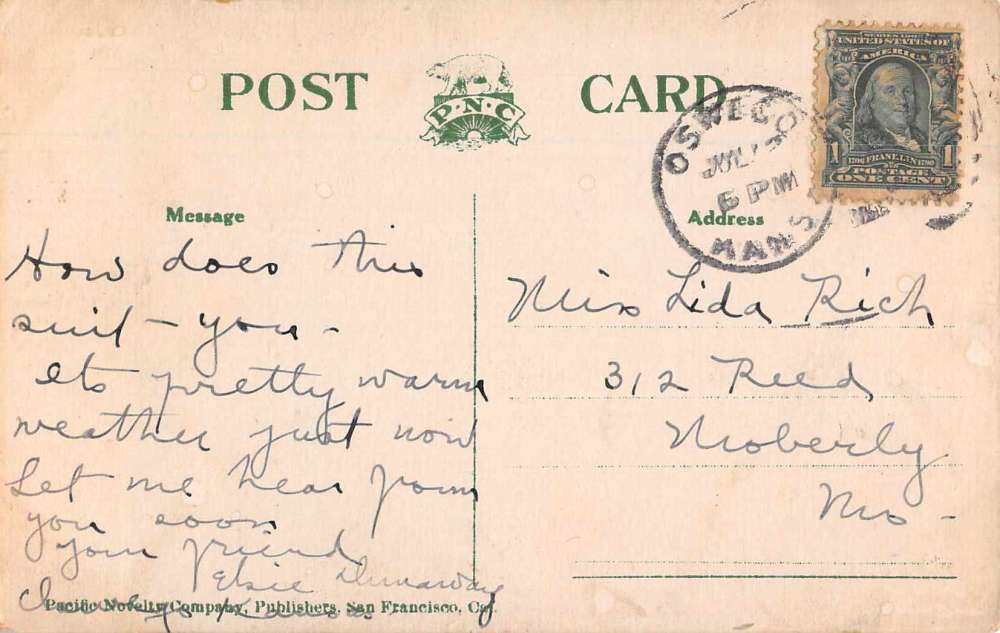 POST CARD
P·N·C
SERIES 1902
UNITED STATES OF
AMERICA
1 1706 FRANKLIN 1790 1
POSTAGE
ONE CENT
OSWEGO
JUL
6 PM
KANS
Message
Address
How does this
suit - you -
Its pretty warm
weather just now
Let me hear from
you soon
your friend
Elsie Dunaway
Kansas
Miss Lida Rich
312 Reed
Moberly
Mo -
Pacific Novelty Company, Publishers, San Francisco, Cal.